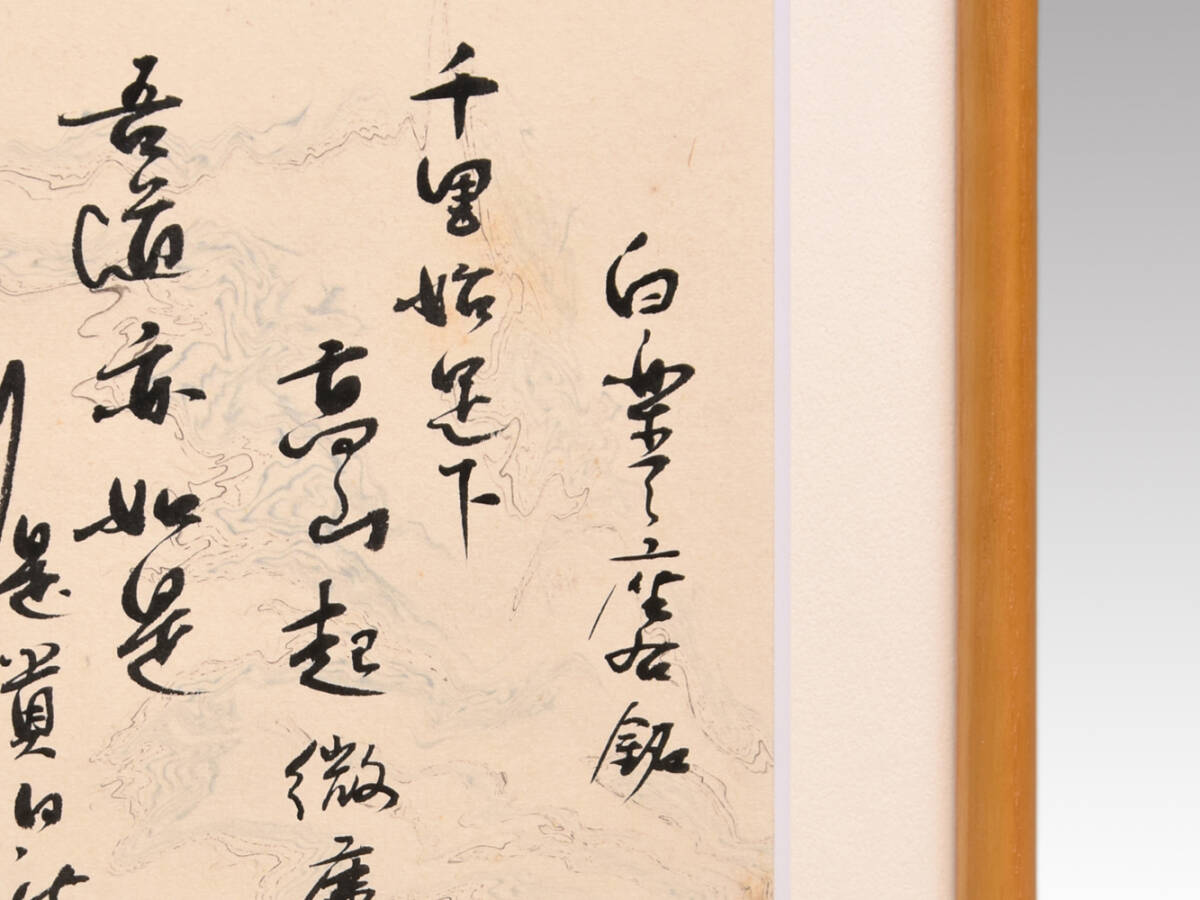 白楽天座右銘
千里始足下
高山起微
吾道亦如是
是貴日